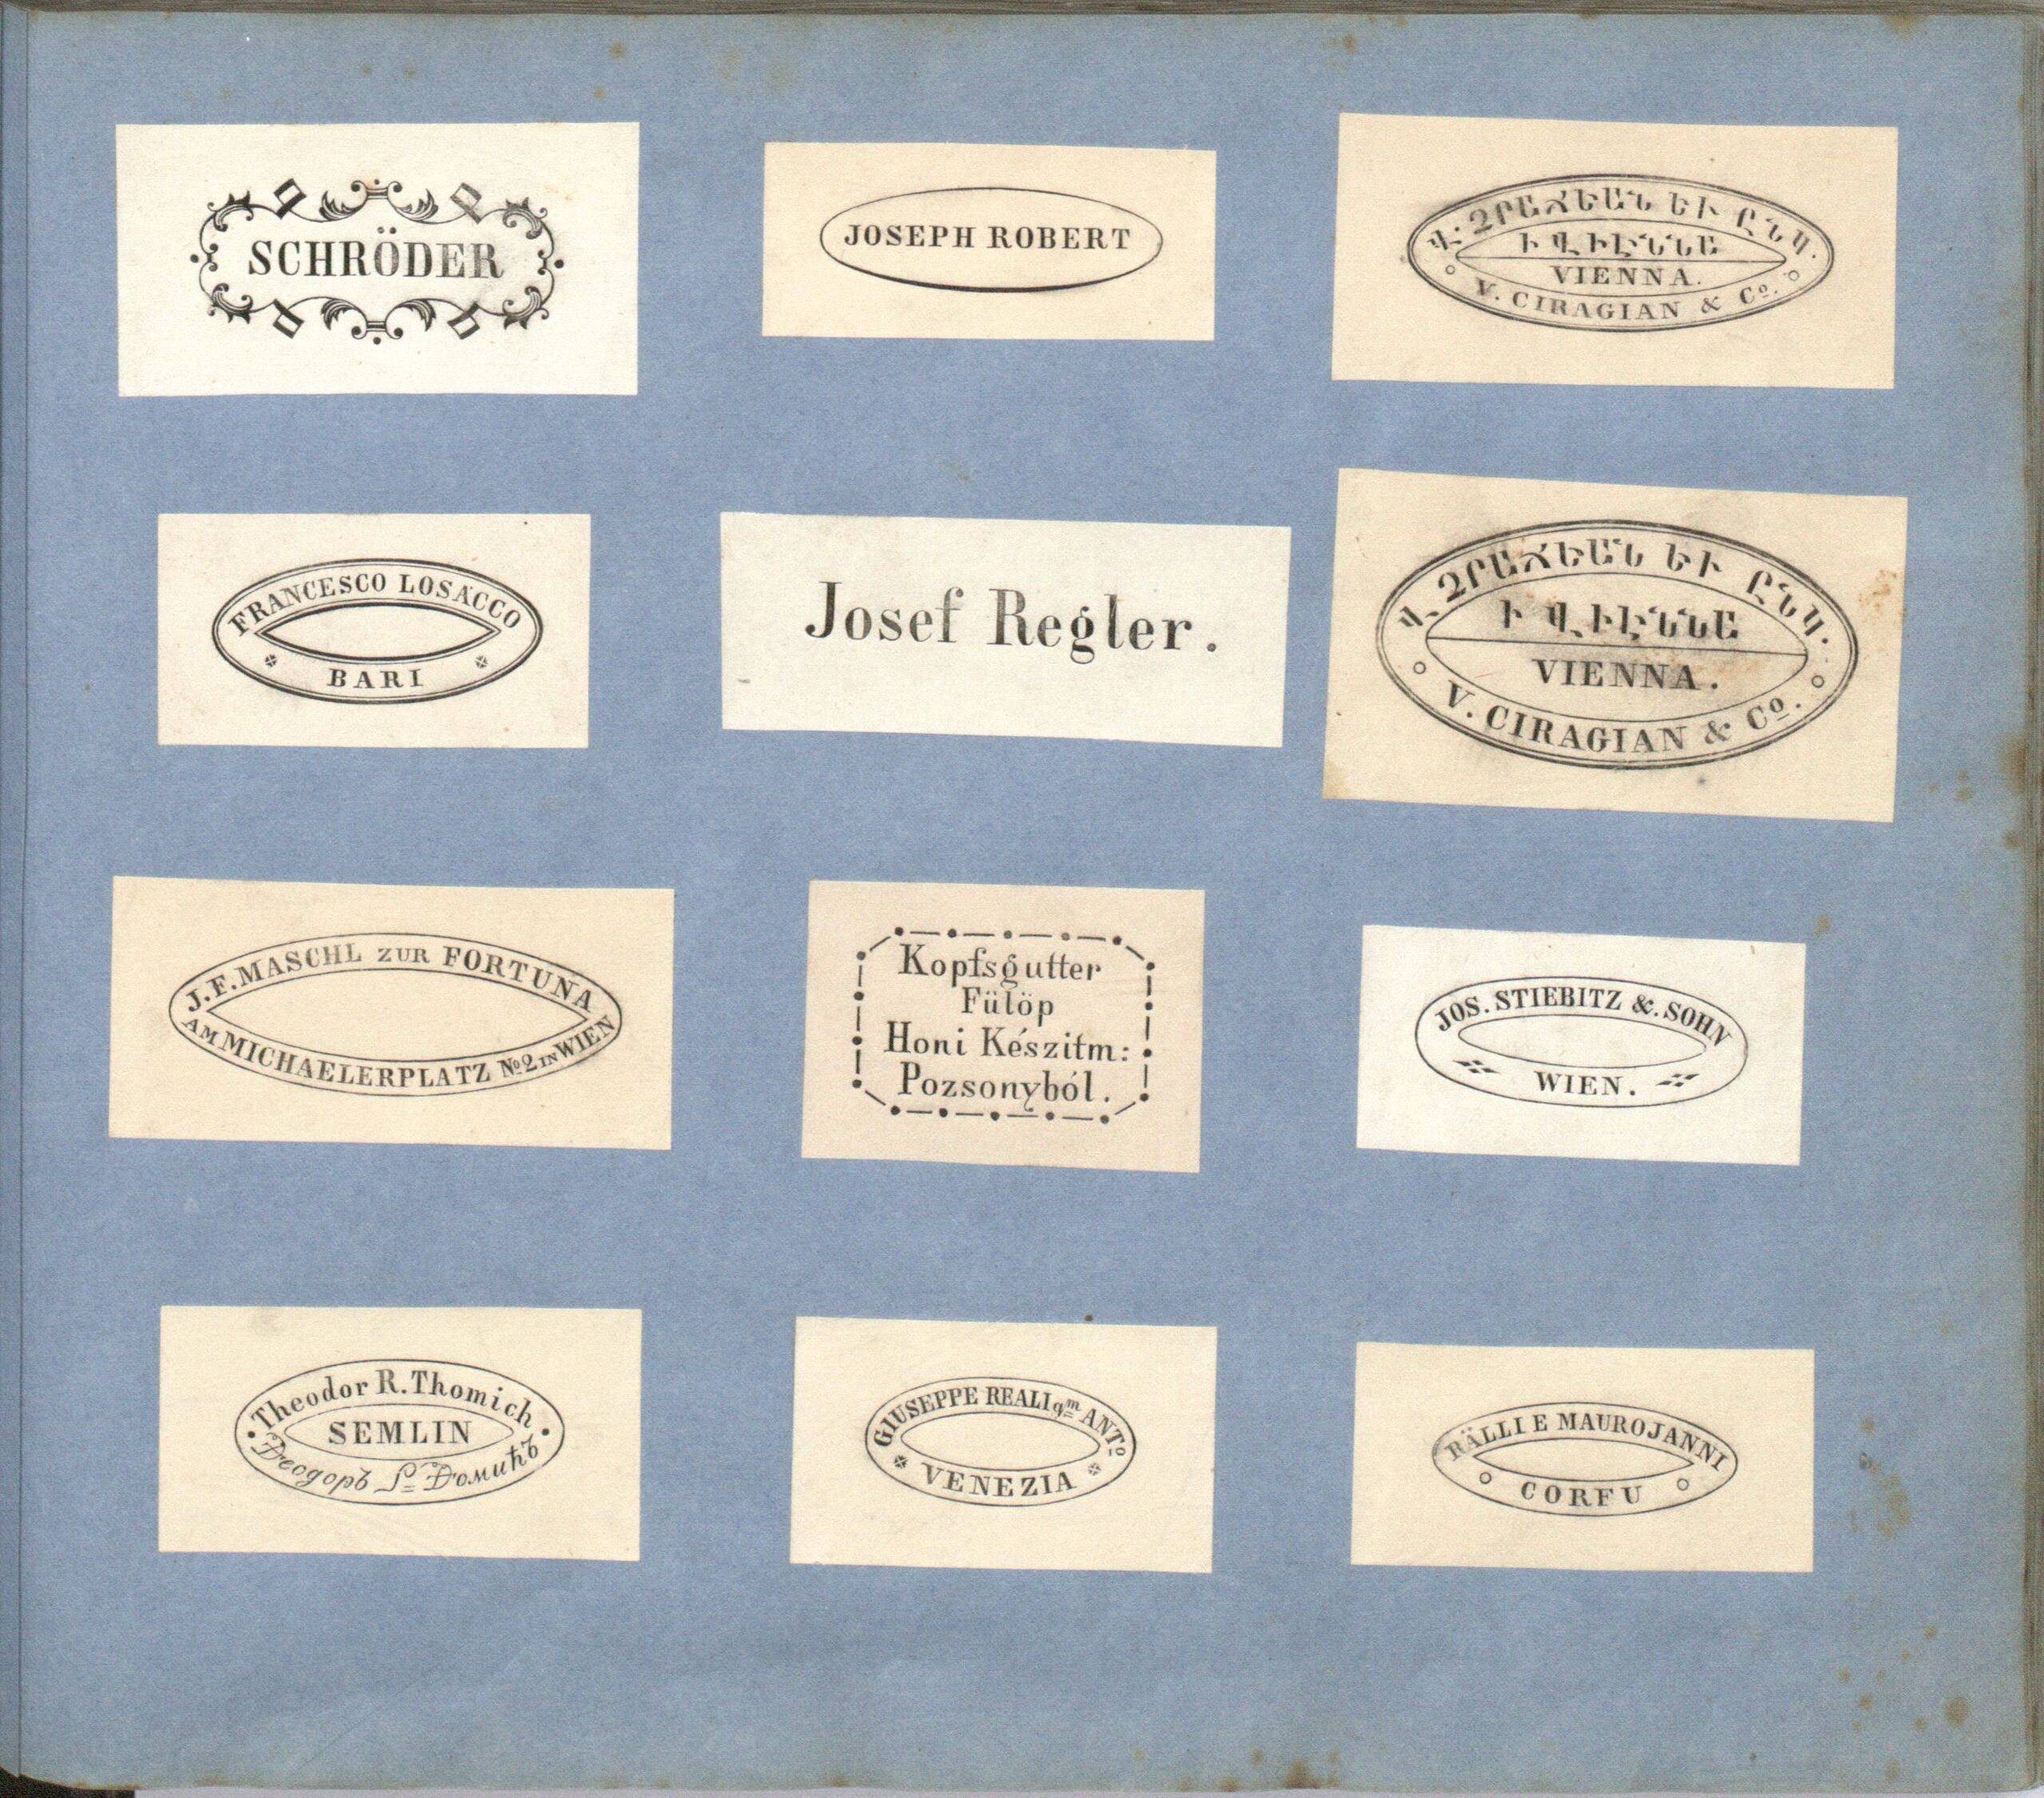 SCHRÖDER
JOSEPH ROBERT
Վ. ՉՐԱՃԵԱՆ ԵՒ ԸՆԿ.
Ի ՎԻԷՆՆԱ
VIENNA.
V. CIRAGIAN & Cº.
FRANCESCO LOSACCO
BARI
Josef Regler.
Վ. ՉՐԱՃԵԱՆ ԵՒ ԸՆԿ.
Ի ՎԻԷՆՆԱ
VIENNA.
V. CIRAGIAN & Cº.
J. F. MASCHL ZUR FORTUNA
AM MICHAELERPLATZ Nº 2 IN WIEN
Kopfsgutter
Fülöp
Honi Készitm:
Pozsonyból.
JOS. STIEBITZ &. SOHN
WIEN.
Theodor R. Thomich
SEMLIN
GIUSEPPE REALI qm ANTº
VENEZIA
RALLI E MAUROJANNI
CORFU